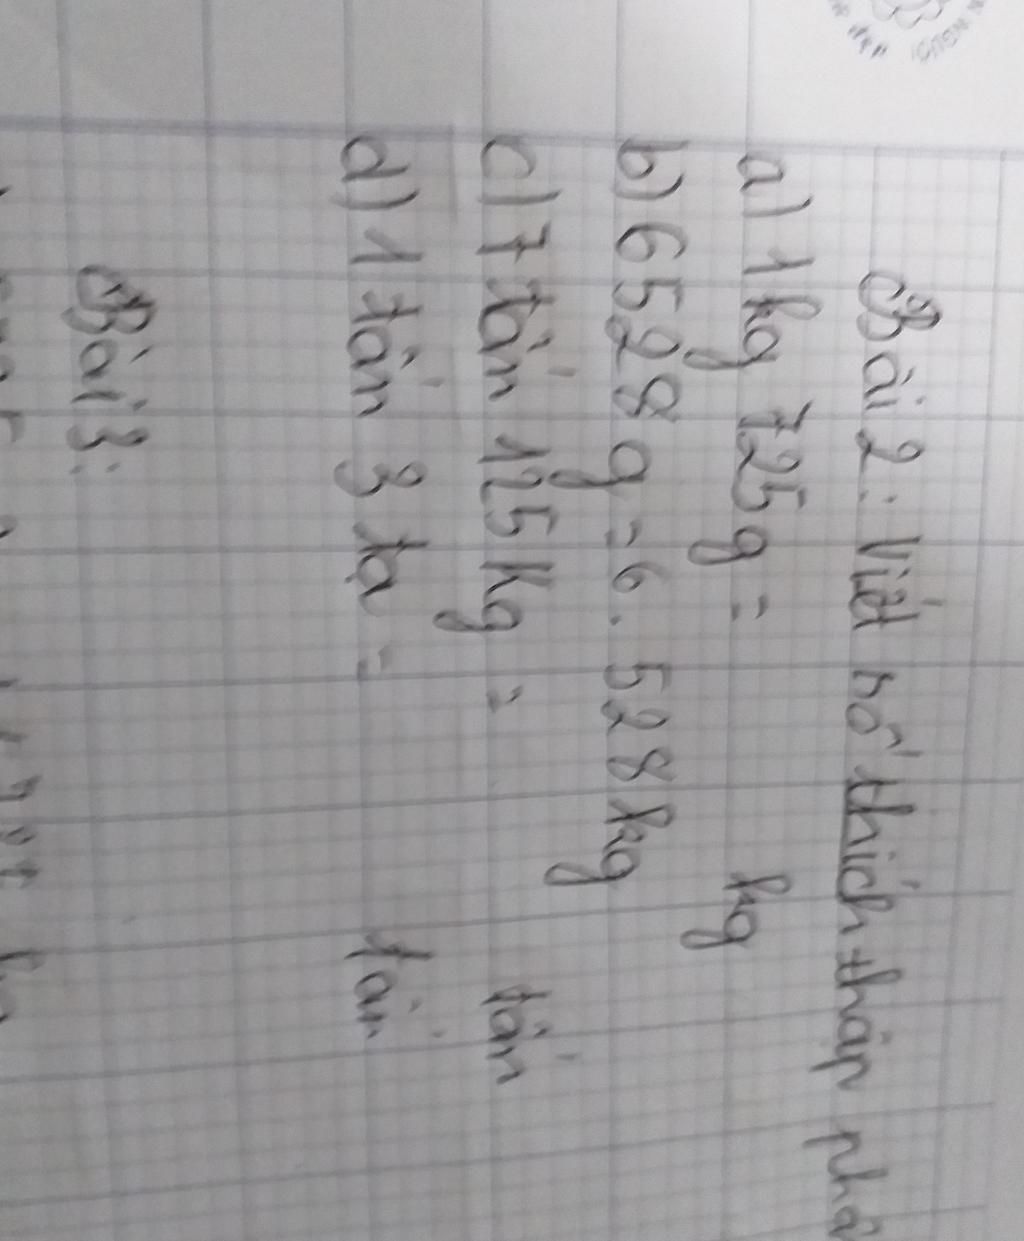 Bài 2: Viết số thích thập phâ
a) 1kg 725g = kg
b) 6528g = 6.528kg
c) 7 tấn 125kg = tấn
d) 1 tấn 3 tạ = tấn
Bài 3: